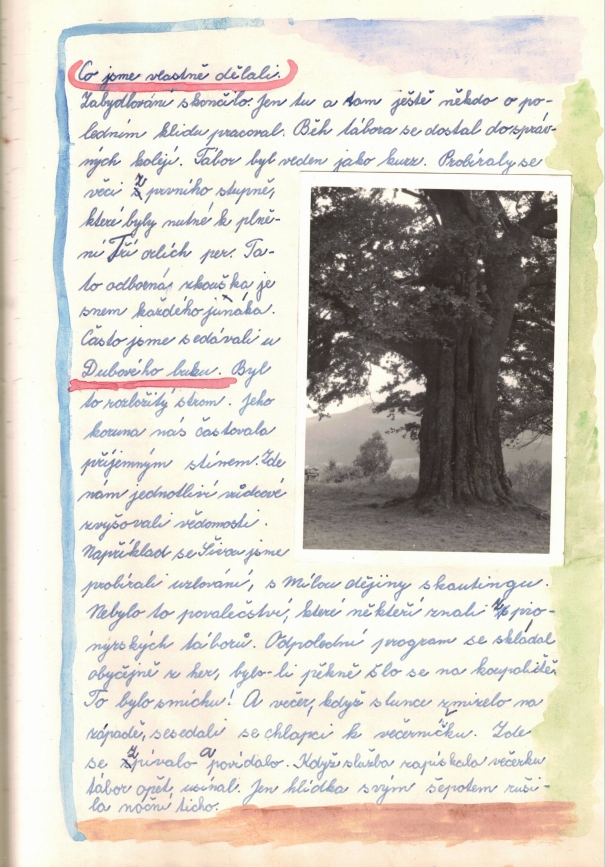 Co jsme vlastně dělali.
Zabydlování skončilo. Jen tu a tam ještě někdo o po-
ledním klidu pracoval. Běh tábora se dostal do správ-
ných kolejí. Tábor byl veden jako kurz. Probíraly se
věci z prvního stupně,
které byly nutné k plně-
ní Tří orlích per. Ta-
to odborná zkouška je
snem každého junáka.
Často jsme sedávali u
Dubového buku. Byl
to rozložitý strom. Jeho
koruna nás častovala
příjemným stínem. Zde
nám jednotliví vůdcové
zvyšovali vědomosti.
Například se jsme
probírali uzlování, s Mílou dějiny skautingu.
Nebylo to povalečství, které někteří znali z pio-
nýrských táborů. Odpolední program se skládal
obyčejně z her, bylo-li pěkně šlo se na koupaliště.
To bylo smíchu! A večer, když slunce zmizelo na
západě, sesedali se chlapci k večerníčku. Zde
se zpívalo a povídalo. Když služba zapískala večerku
tábor opět usínal. Jen hlídka svým šepotem ruši-
la noční ticho.